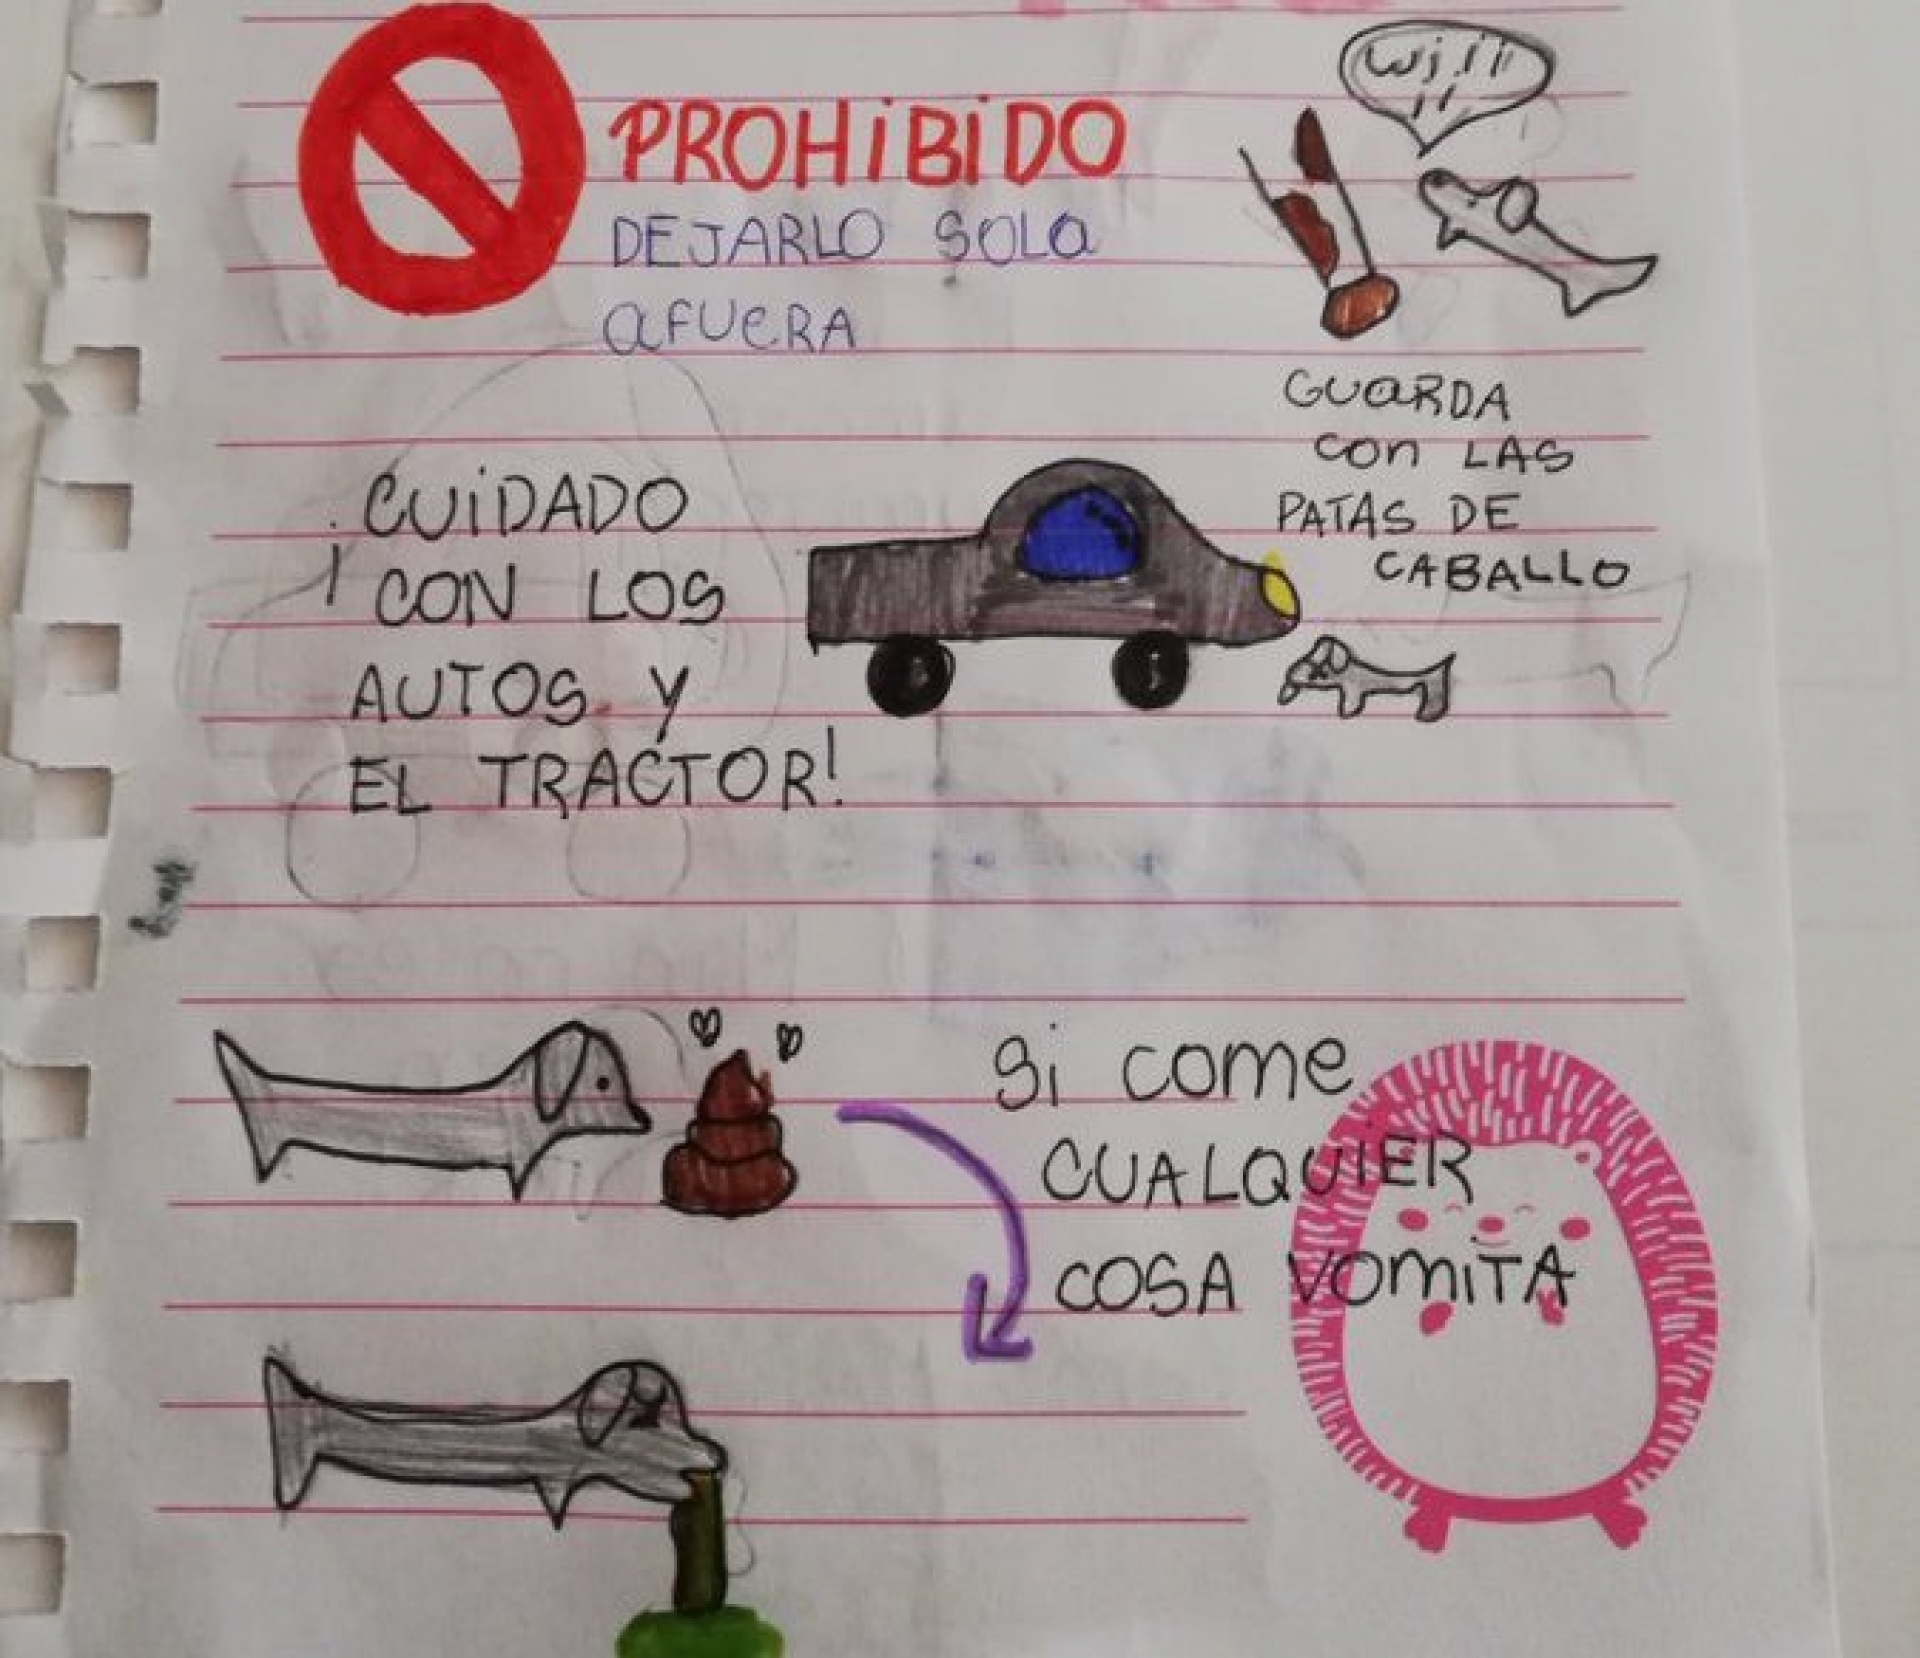 PROHIBIDO
DEJARLO SOLO
AFUERA
Wiiii
GUARDA
CON LAS
PATAS DE
CABALLO
¡CUIDADO
CON LOS
AUTOS Y
EL TRACTOR!
Si come
CUALQUIER
COSA VOMITA